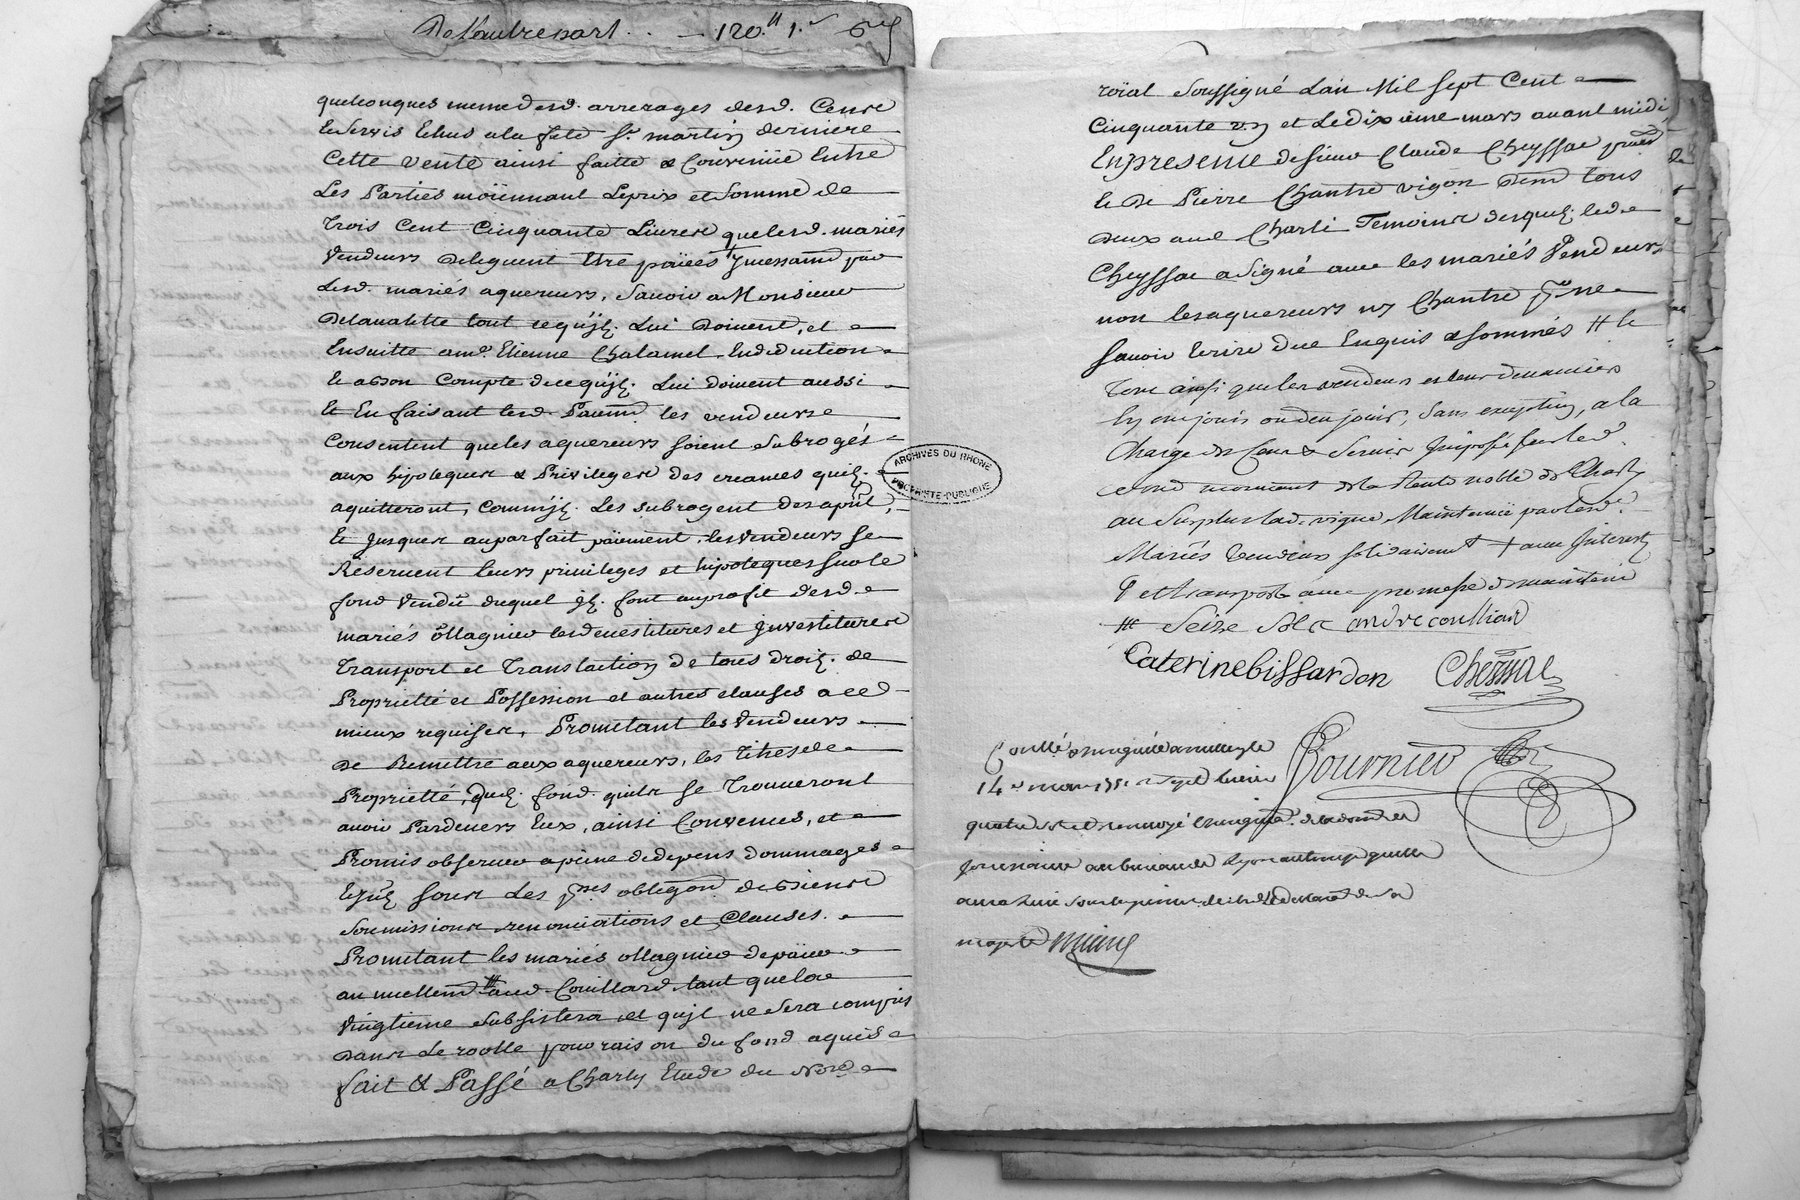 De L'autre part . . — 120.# 1.s 6d
quelconques meme desd. arrerages desd. Cens
Et Servis Echus a la fete St. martin derniere
Cette vente ainsi faitte & Convenüe Entre
Les Parties moïennant Le prix et Somme de
Trois Cent Cinquante Livres que lesd. mariés
Vendeurs deleguent Etre païées par
Lesd. mariés aquereurs, Savoir a Monsieur
Delavalette tout ce qu'jl. Lui doivent, et
Ensuitte a me. Etienne Chalamel En deduction
Et a bon Compte de ce qu'jl. Lui doivent aussi
Et En faisant lesd. Paiemt. les vendeurs
Consentent que les aquereurs soient Subrogés
aux hipoteques & Privileges des creances qu'il.
aquitteront, comm'jl. Les subrogent des aprt.,
Et jusques au parfait païement, les vendeurs se
Reservent leurs privileges et hipoteques sur le
fond vendû duquel jl. font au profit desd.
mariés ollagnier les devestitures et jnvestitures
Transport et Translation de tous droit. de
Proprieté et Possession et autres clauses a ce
mieux requises, Prometant les Vendeurs
De Remettre aux aquereurs, les titres de
Proprietté, dud. fond qu'ils se Trouveront
avoir Pardevers Eux, ainsi Convenus, et
Promis observer a peine de depens dommages
Et jnt. sous Les pnes. obligaon. de biens
Soumissions renonciations et Clauses.
Prometant les mariés ollagnier de païer
annuellemt. aud. Couillard tant que la
Vingtieme Subsistera et qu'jl ne Sera compris
Dans Le rolle pour raison du fond aquis
fait & Passé a Charly Etude du Nore.
roïal Soussigné L'an Mil Sept Cent
Cinquante un et Le dixieme mars avant midi
En presence de Sieur Claude Cheyssac
Et De Pierre Chantre vigon. demt. tous
deux aud. Charli Temoins desquel. led.
Cheyssac a Signé avec les mariés Vendeurs
non les aquereurs ny Chantre pour ne
savoir Ecrire de ce Enquis & sommés # le
Tout ainsi que les vendeurs et leurs devanciers
En ont jouis ou deu jouir, Sans exception, a la
Charge des Cens & Servis jmposés sur led.
fond mouvant de la Rente noble de Charly
au Surplus lad. vigne Maintenüe par lesd.
Mariés Vendeurs solidairemt. + avec jnterest
¶ et transport avec promesse de maintenir
### Seize Sols andre coulliard
Caterinebissardon Cheÿssac
Conllé & Insinué a millery le
14e. mars 1751 Reçu
Fournier
quatre de la
Lyon
sous les peines de la
majesté
ARCHIVES DU RHONE
VOCABLE PUBLIQUE